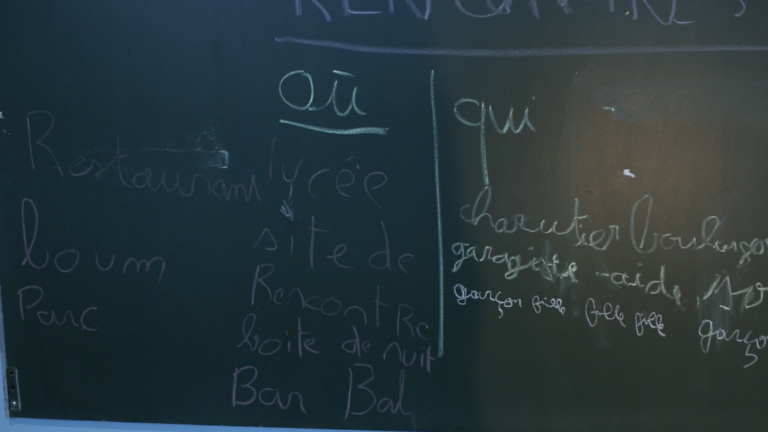 RENCONTRES
où
qui
Restaurant lycée
charcutier boulanger
loum site de
garagiste aide
Parc Rencontre
garçon fille fille fille garço
boite de nuit
Bar Bal